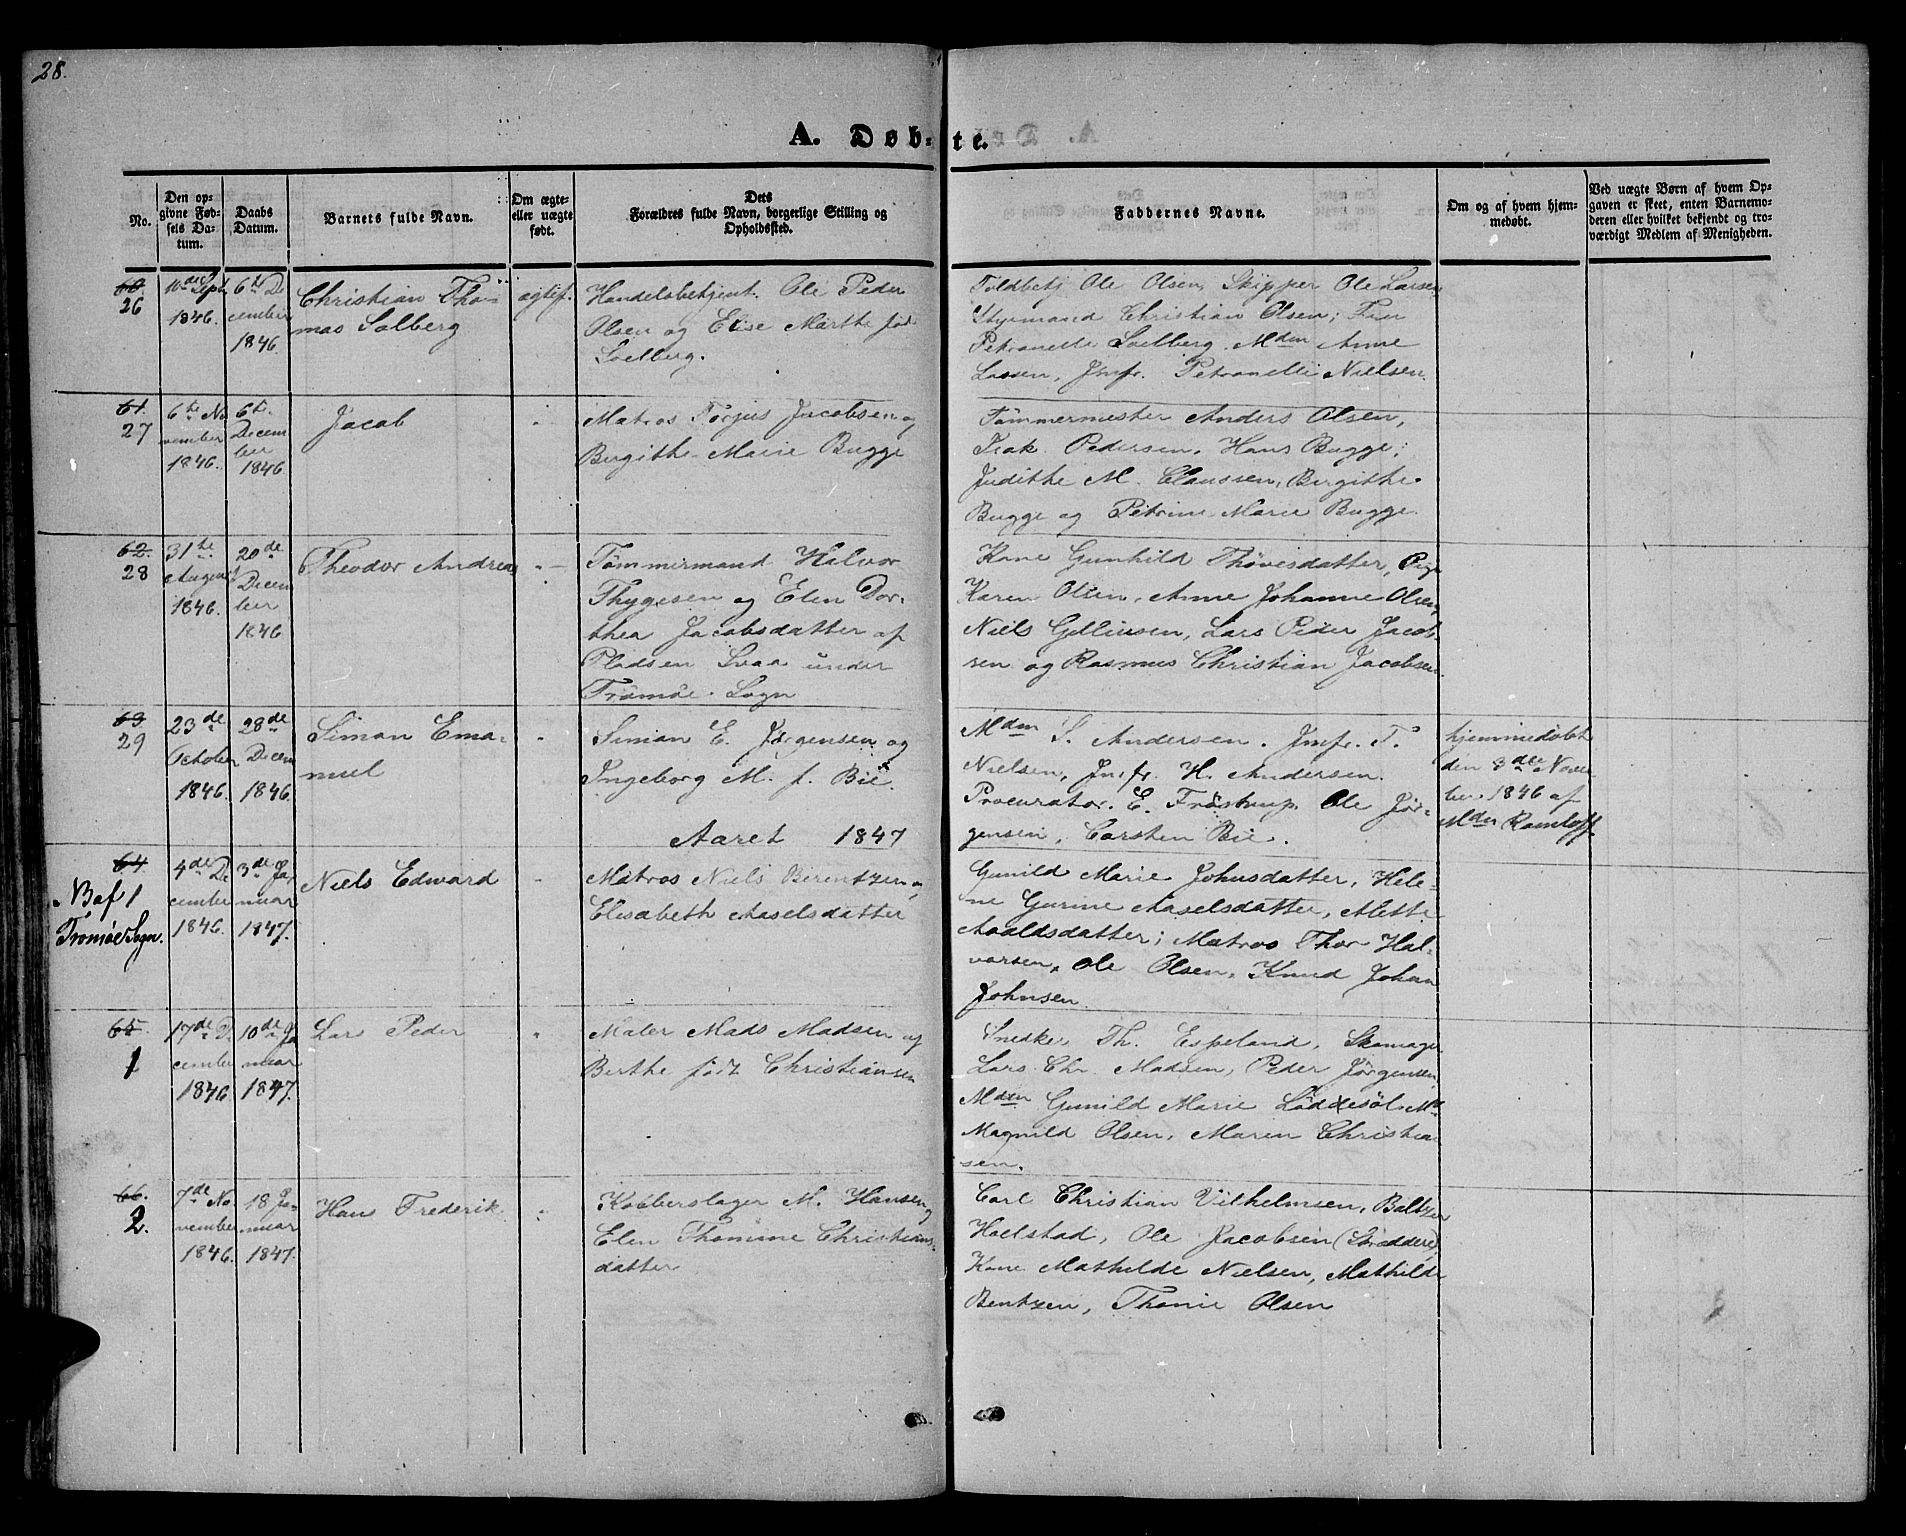 28.
A. Døb-te.
No.
Den op-
givne Fød-
sels Da-
tum.
Daabs
Datum.
Barnets fulde Navn.
Om ægte-
eller uægte
født.
Dets
Forældres fulde Navn, borgerlige Stilling og
Opholdssted.
Faddernes Navne.
Om og af hvem hjem-
medøbt.
Ved uægte Børn af hvem Op-
gaven er skeet, enten Barnemo-
deren eller hvilket bekjendt og tro-
værdigt Medlem af Menigheden.
60
26
10de Sept
1846.
6te De
cember
1846.
Christian Tho-
mas Solberg
ægtef.
Handelsbetjent Ole Peder
Olsen og Elise Marthe født
Soelberg.
Toldbetj Ole Olsen, Skipper Ole Larsen
Styrmand Christian Olsen;
Petronelle Soelberg, Mdm Anne
Lassen, Jmfr. Petronelle Nielsen.
61.
27
6te No
vember
1846.
6te
Decem
ber
1846
Jacob
Matros Tørjus Jacobsen og
Birgithe Marie Bugge
Tømmermester Anders Olsen,
Isak Pedersen, Hans Bugge;
Judithe M. Claussen, Birgithe
Bugge og Petrine Marie Bugge.
62.
28
31te
August
1846.
20de
Decem
ber
1846
Theodor Andreas
Tømmermand Halvor
Thygesen og Elen Dor-
thea Jacobsdatter af
Pladsen Svaa under
Tromøe Sogn
Kone Gunhild Thovisdatter, Pige
Karen Olsen, Anne Johanne Olsen,
Niels Gellinsen, Lars Peder Jacob-
sen og Rasmus Christian Jacobsen.
63
29
23de
October
1846.
28de
Decem
1846.
Simon Ema-
nuel
Simon E. Jørgensen og
Ingeborg M. f. Bie.
Mdm S. Andersen. Jmfr. T.
Nielsen, Jmfr. H. Andersen.
Procurator E. Frøstrup. Ole Jør-
gensen, Carsten Bie.
hjemmedøbt
den 3die Novem-
ber 1846 af
Mdm Ramløff.
Aaret 1847
64
N B af 1
Tromøe Sogn.
4de De
cember
1846.
3de Ja
nuar
1847.
Niels Edward
Matros Niels Berentzen og
Elisabeth Aaselsdatter
Gunild Marie Johnsdatter, Hele-
ne Gurine Aaselsdatter, Mette
Avaldsdatter; Matros Thor Hal-
vorsen, Ole Olsen, Knud Johan
Johnsen
65.
1
17de De
cember
1846
10de Ja
nuar
1847.
Lars Peder
Maler Mads Madsen og
Berthe født Christiansen
Snedker Th. Espeland, Skomager
Lars Chr. Madsen, Peder Jørgensen
Mdm Gunild Marie Løddesøl Md
Magnild Olsen, Maren Christia
sen.
66.
2.
7de No
vember
1846.
18 Ja-
nuar
1847.
Hans Frederik
Kobberslager M. Hansen og
Elen Thomine Christians-
datter
Carl Christian Vilhelmsen, Baltzer
Hoelstad, Ole Jacobsen (Skrædder),
Kone Mathilde Nielsen, Mathilde
Bentzen, Thomine Olsen